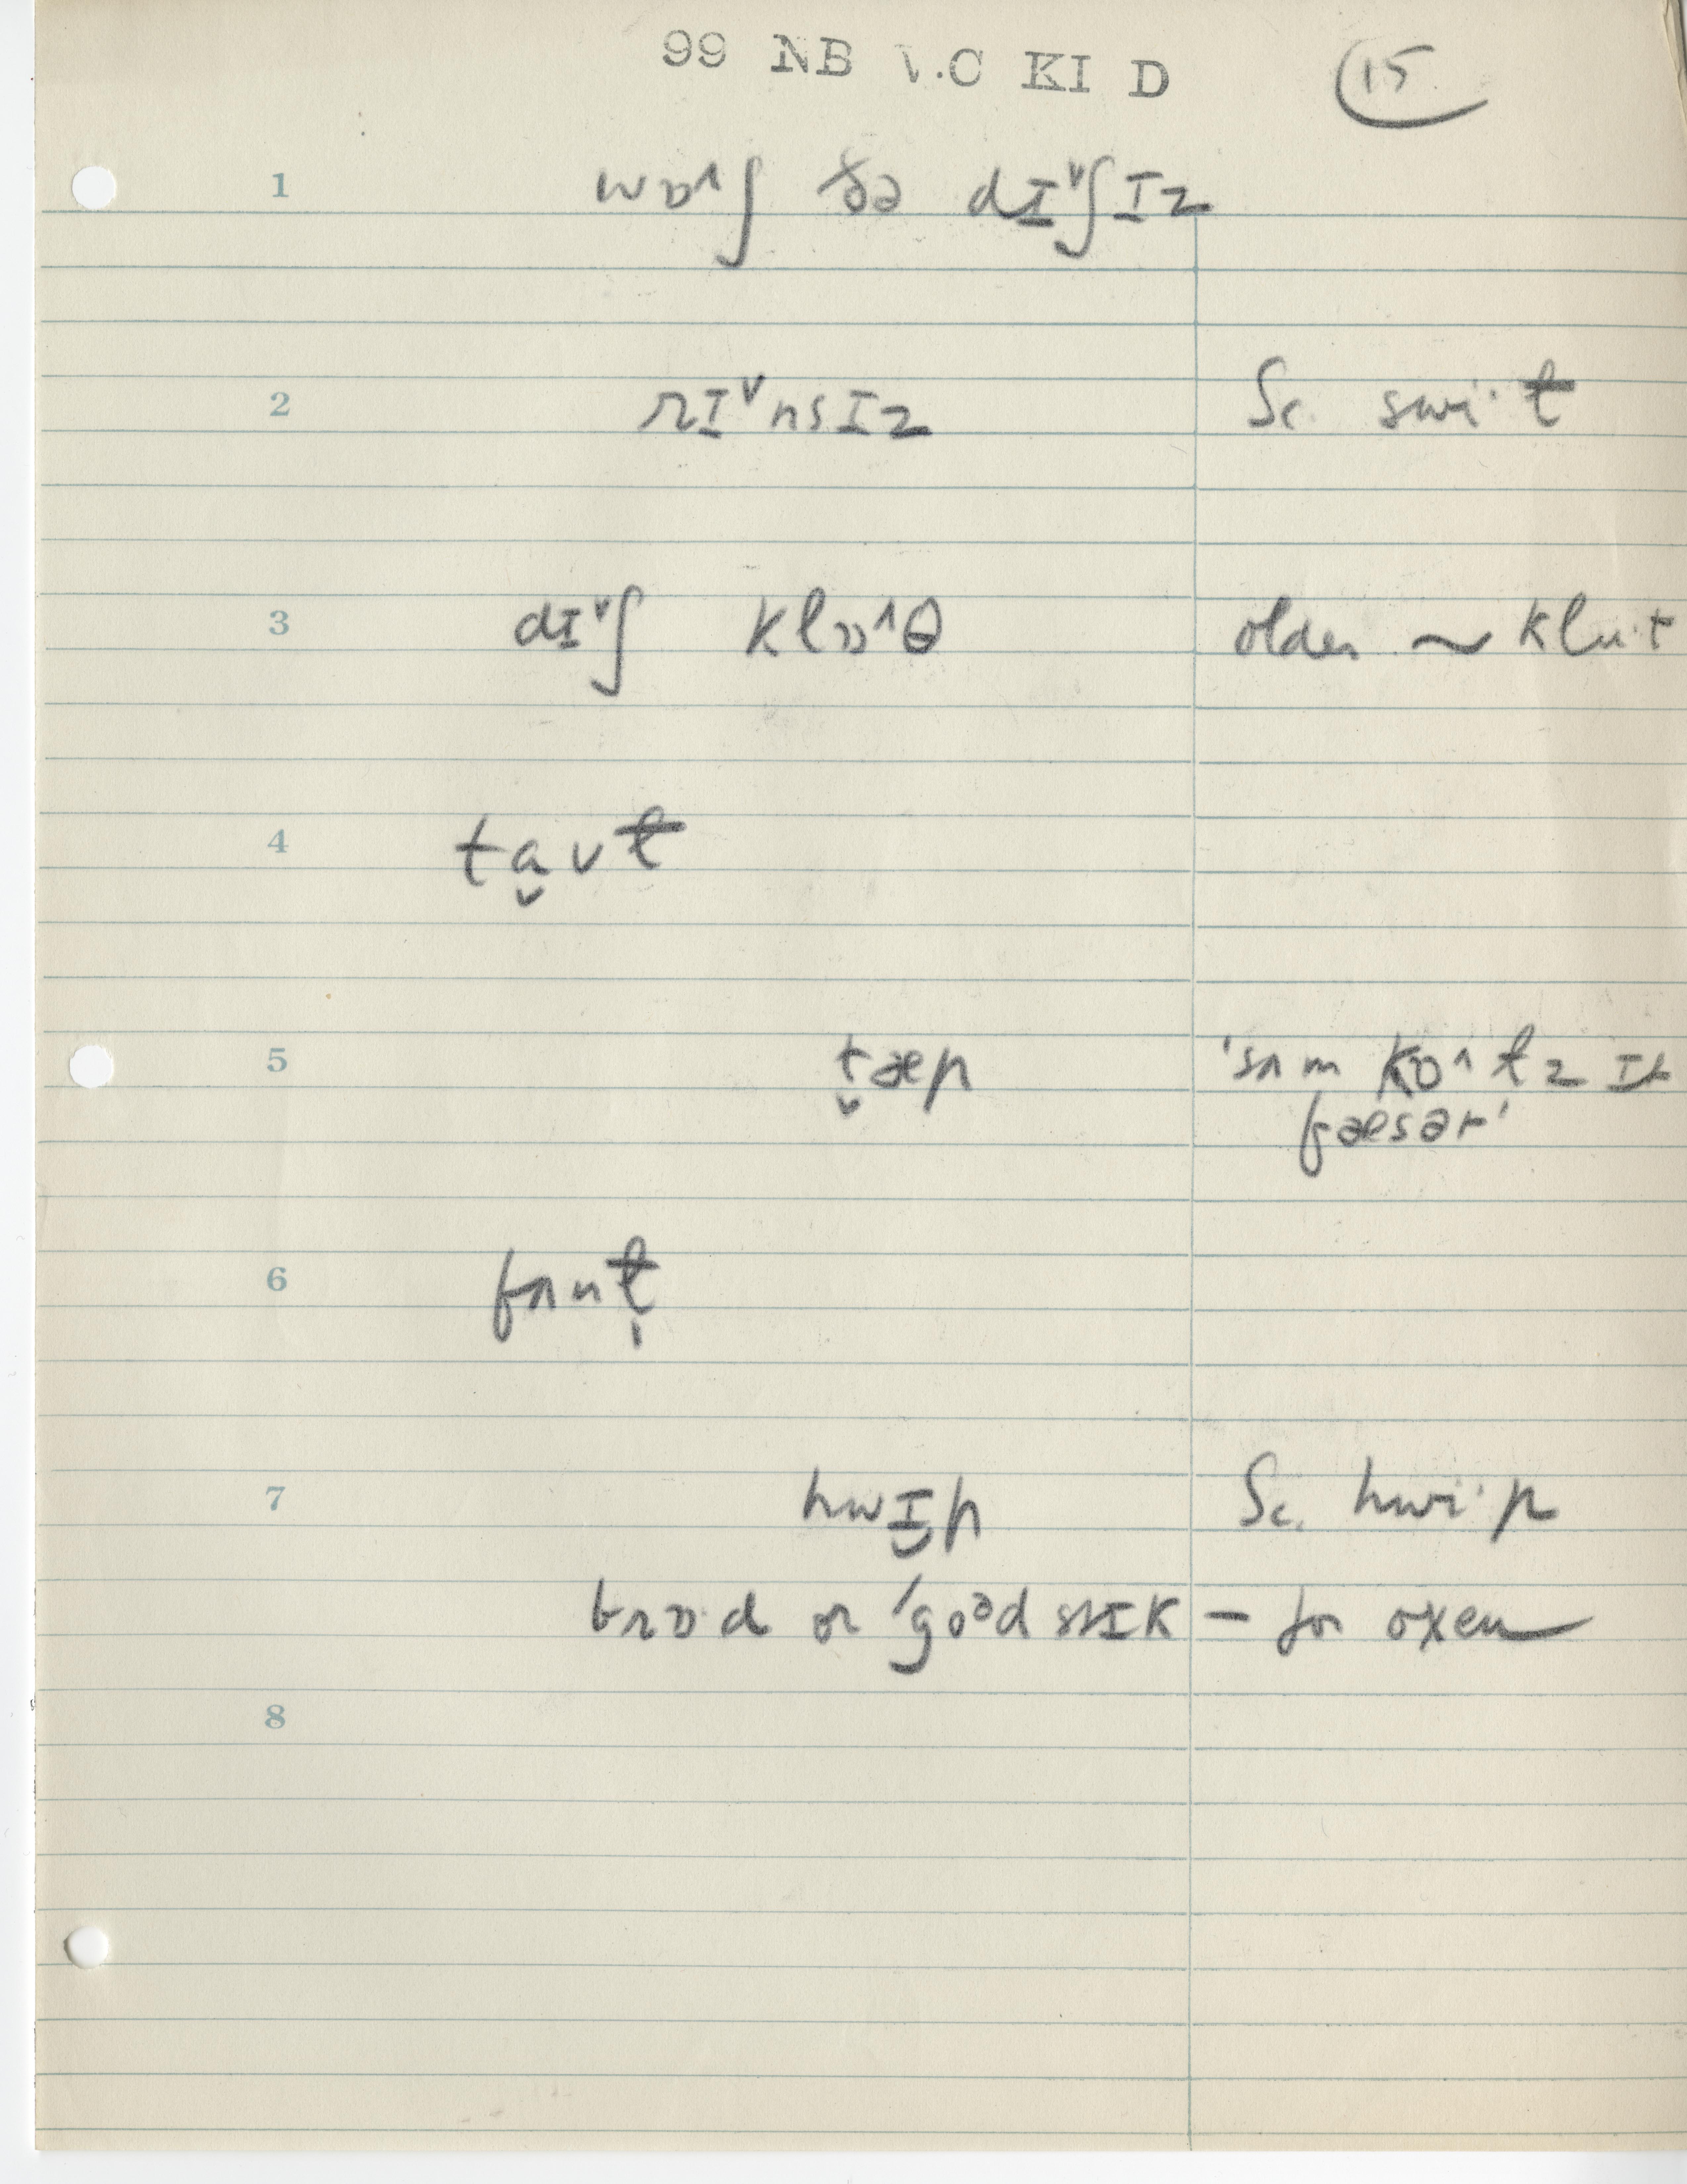 99 NB V.C KI D 15
1 wɒ˄ʃ ðə dɪ˅ʃɪz
2 rɪ˅nsɪz Sc. swi·t̶
3 dɪ˅ʃ klɒ˄θ older ~ klu·t
4 ta̬ʊɫ
5 t̬æp 'sʌm kɒ˄ɫz ɪt
fæsər'
6 fʌnɫ̩
7 hwɪ̮p Sc. hwi·p
brɒ·d or 'goəd stɪk – for oxen
8